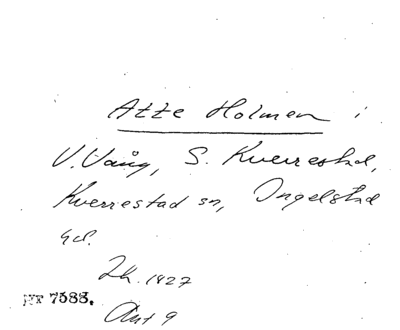 Atte Holmen i
V. Vång, S. Kverrestad,
Kverrestad sn, Ingelstad
hd.
Lk. 1827
NT 7588.
Akt 9